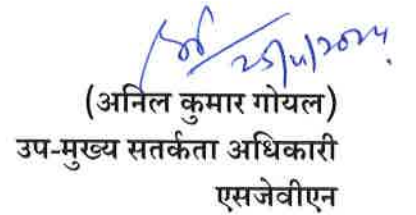 25/11/2024
(अनिल कुमार गोयल)
उप-मुख्य सतर्कता अधिकारी
एसजेवीएन